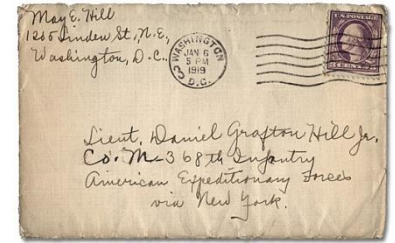 May E. Hill
1205 Linden St., N.E,
Washington, D.C.
WASHINGTON
JAN 6
5 PM
1919
D.C.
U.S. POSTAGE
Lieut. Daniel Grafton Hill Jr.
Co. M - 368th Infantry
American Expeditionary Forces
via New York.